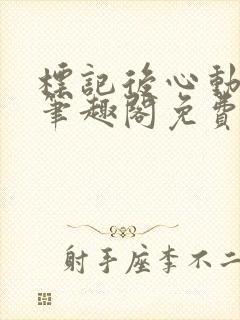 標記後心動
筆趣閣免費
射手座李不二